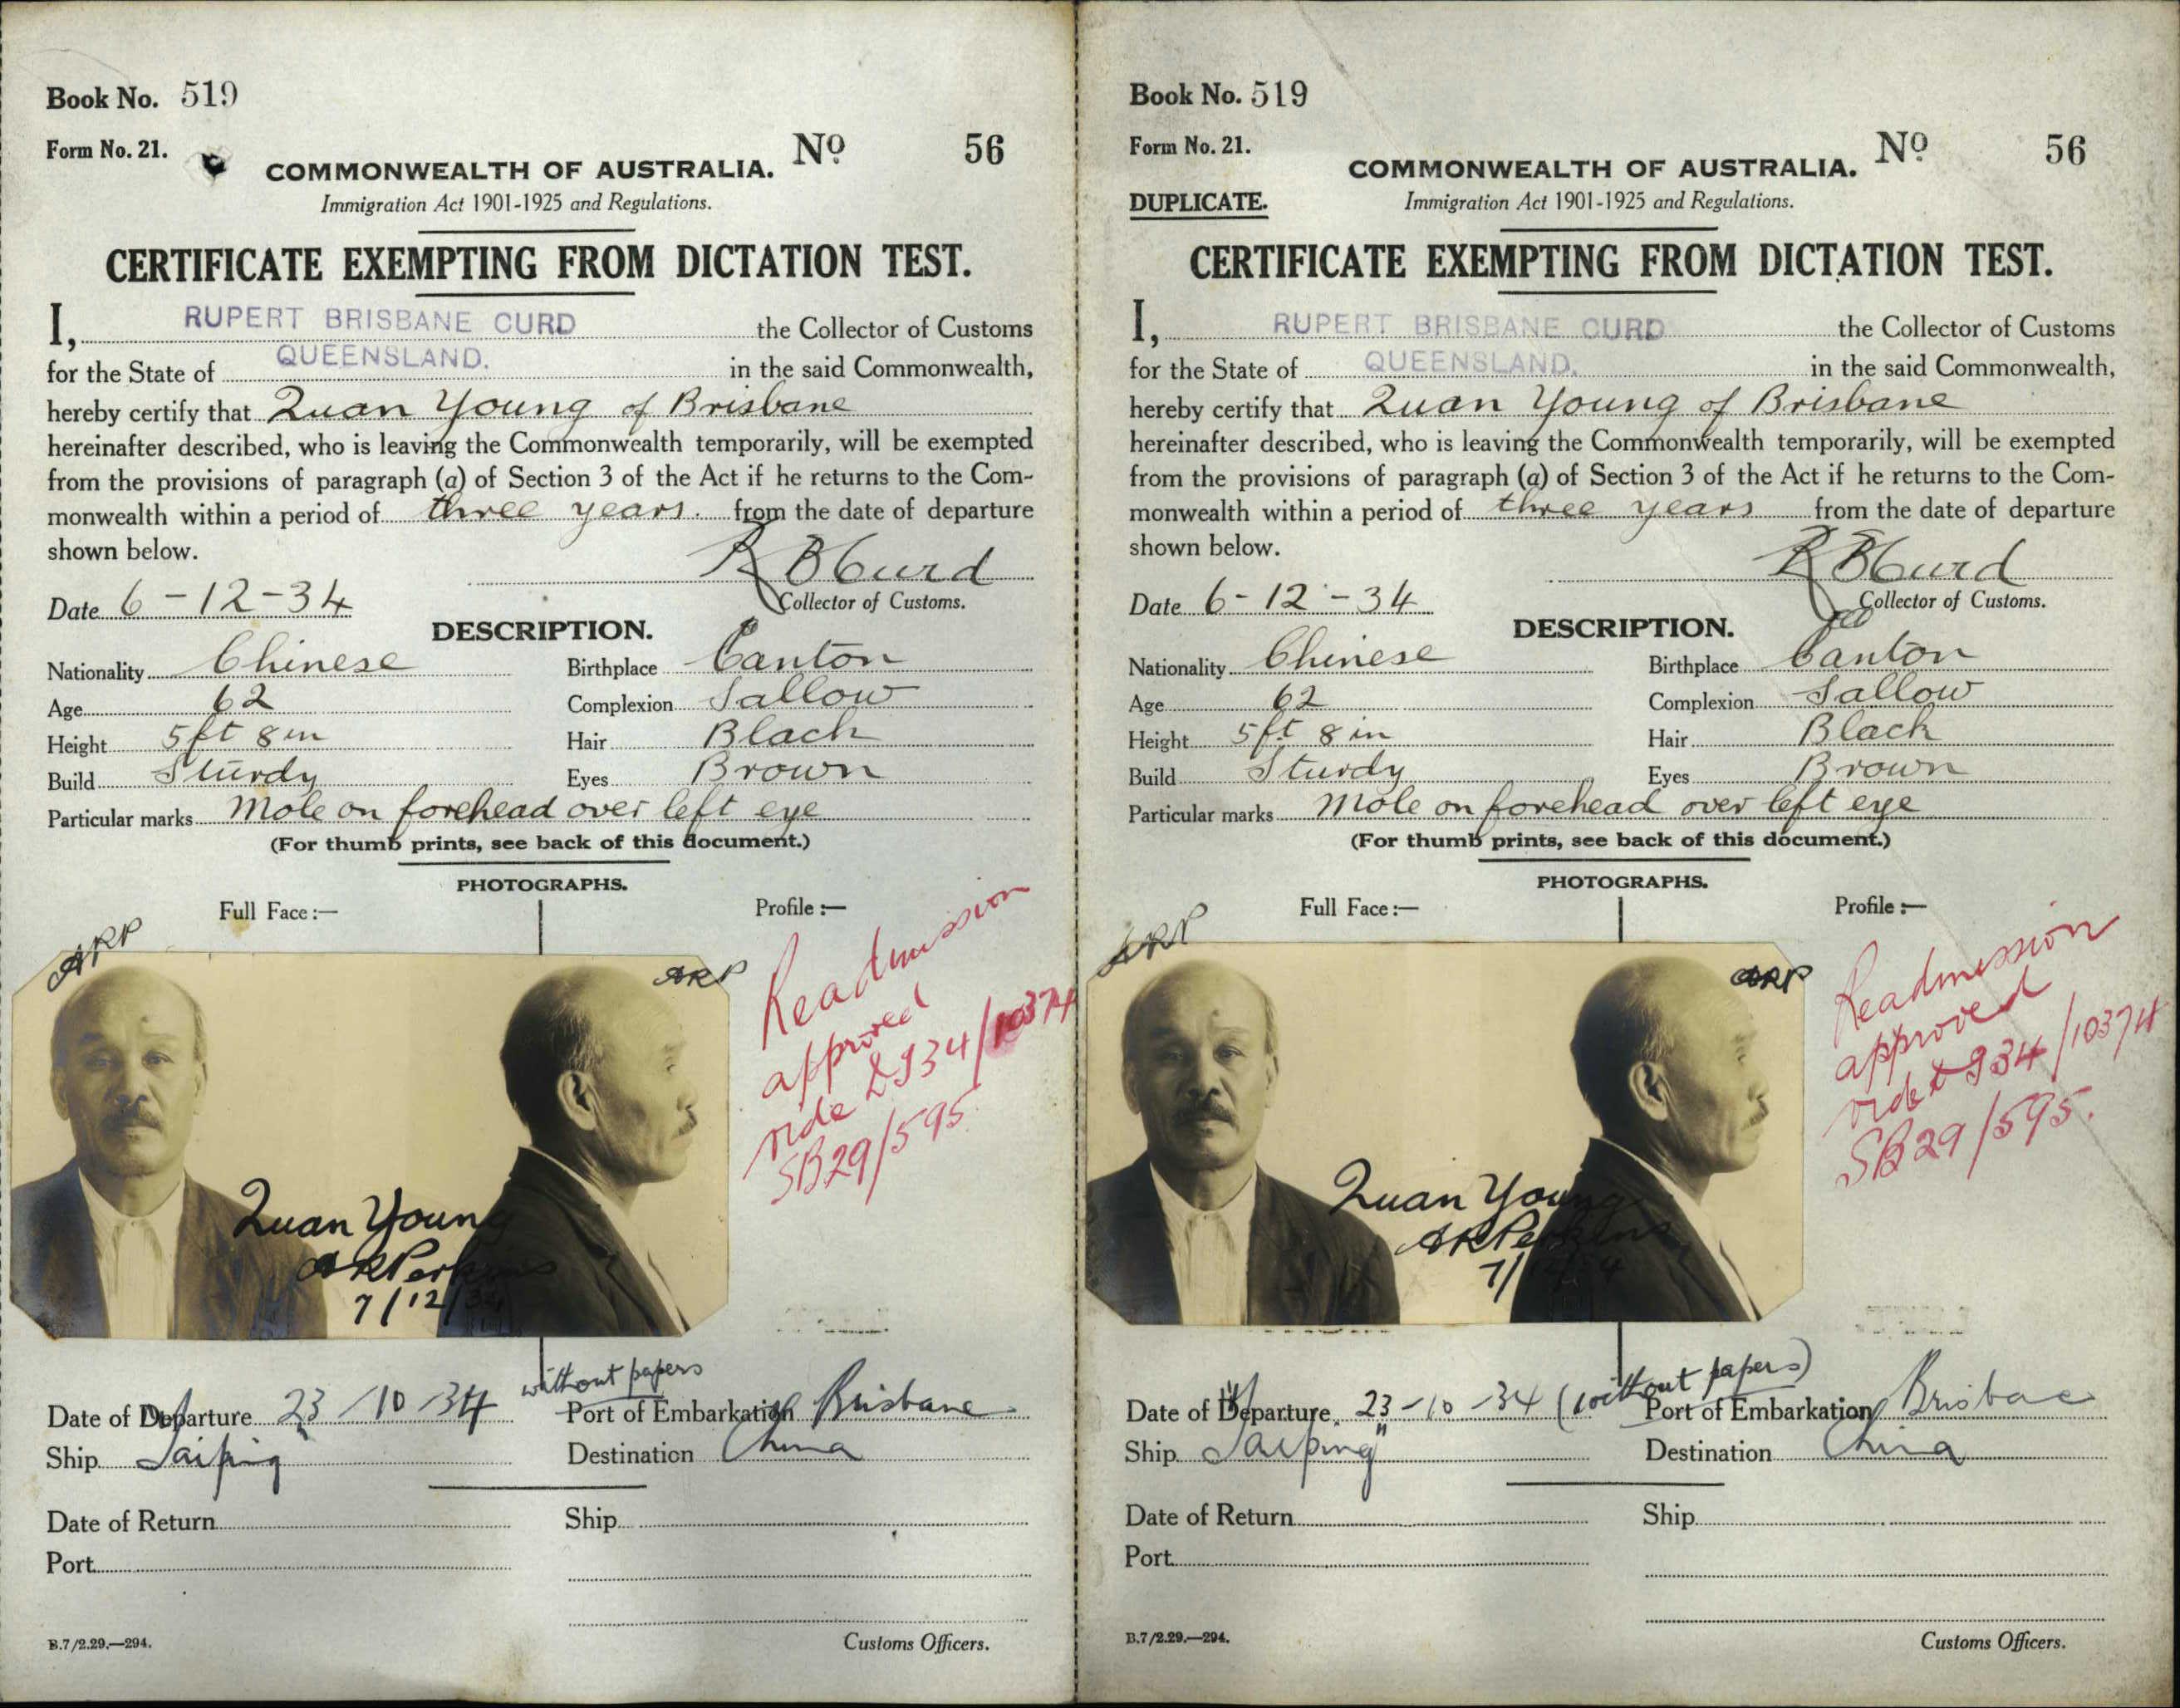 Book No. 519
Form No. 21.
Nº 56
COMMONWEALTH OF AUSTRALIA.
Immigration Act 1901-1925 and Regulations.
CERTIFICATE EXEMPTING FROM DICTATION TEST.
I, RUPERT BRISBANE CURD the Collector of Customs
for the State of QUEENSLAND. in the said Commonwealth,
hereby certify that Quan Young of Brisbane
hereinafter described, who is leaving the Commonwealth temporarily, will be exempted
from the provisions of paragraph (a) of Section 3 of the Act if he returns to the Com-
monwealth within a period of three years. from the date of departure
shown below.
R B Curd
Date 6-12-34
Collector of Customs.
DESCRIPTION.
Nationality Chinese Birthplace Canton
Age 62 Complexion Sallow
Height 5ft 8in Hair Black
Build Sturdy Eyes Brown
Particular marks Mole on forehead over left eye
(For thumb prints, see back of this document.)
PHOTOGRAPHS.
Full Face:— Profile:—
ARP
ARP
Readmission
approved
vide Q934/10374
SB29/595
Quan Young
ARPerkins
7/12/34
without papers
Date of Departure 23/10/34 Port of Embarkation Brisbane
Ship Taiping Destination China
Date of Return Ship
Port
B.7/2.29.—294.
Customs Officers.
Book No. 519
Form No. 21.
Nº 56
COMMONWEALTH OF AUSTRALIA.
DUPLICATE.
Immigration Act 1901-1925 and Regulations.
CERTIFICATE EXEMPTING FROM DICTATION TEST.
I, RUPERT BRISBANE CURD the Collector of Customs
for the State of QUEENSLAND. in the said Commonwealth,
hereby certify that Quan Young of Brisbane
hereinafter described, who is leaving the Commonwealth temporarily, will be exempted
from the provisions of paragraph (a) of Section 3 of the Act if he returns to the Com-
monwealth within a period of three years from the date of departure
shown below.
R B Curd
Date 6-12-34
Collector of Customs.
DESCRIPTION.
Nationality Chinese Birthplace Canton
Age 62 Complexion Sallow
Height 5ft 8in Hair Black
Build Sturdy Eyes Brown
Particular marks Mole on forehead over left eye
(For thumb prints, see back of this document.)
PHOTOGRAPHS.
Full Face:— Profile:—
ARP
ARP
Readmission
approved
vide 934/10374
SB29/595.
Quan Young
ARPerkins
Date of Departure 23-10-34 (without papers) Port of Embarkation Brisbane
Ship "Taiping" Destination China
Date of Return Ship
Port
B.7/2.29.—294.
Customs Officers.